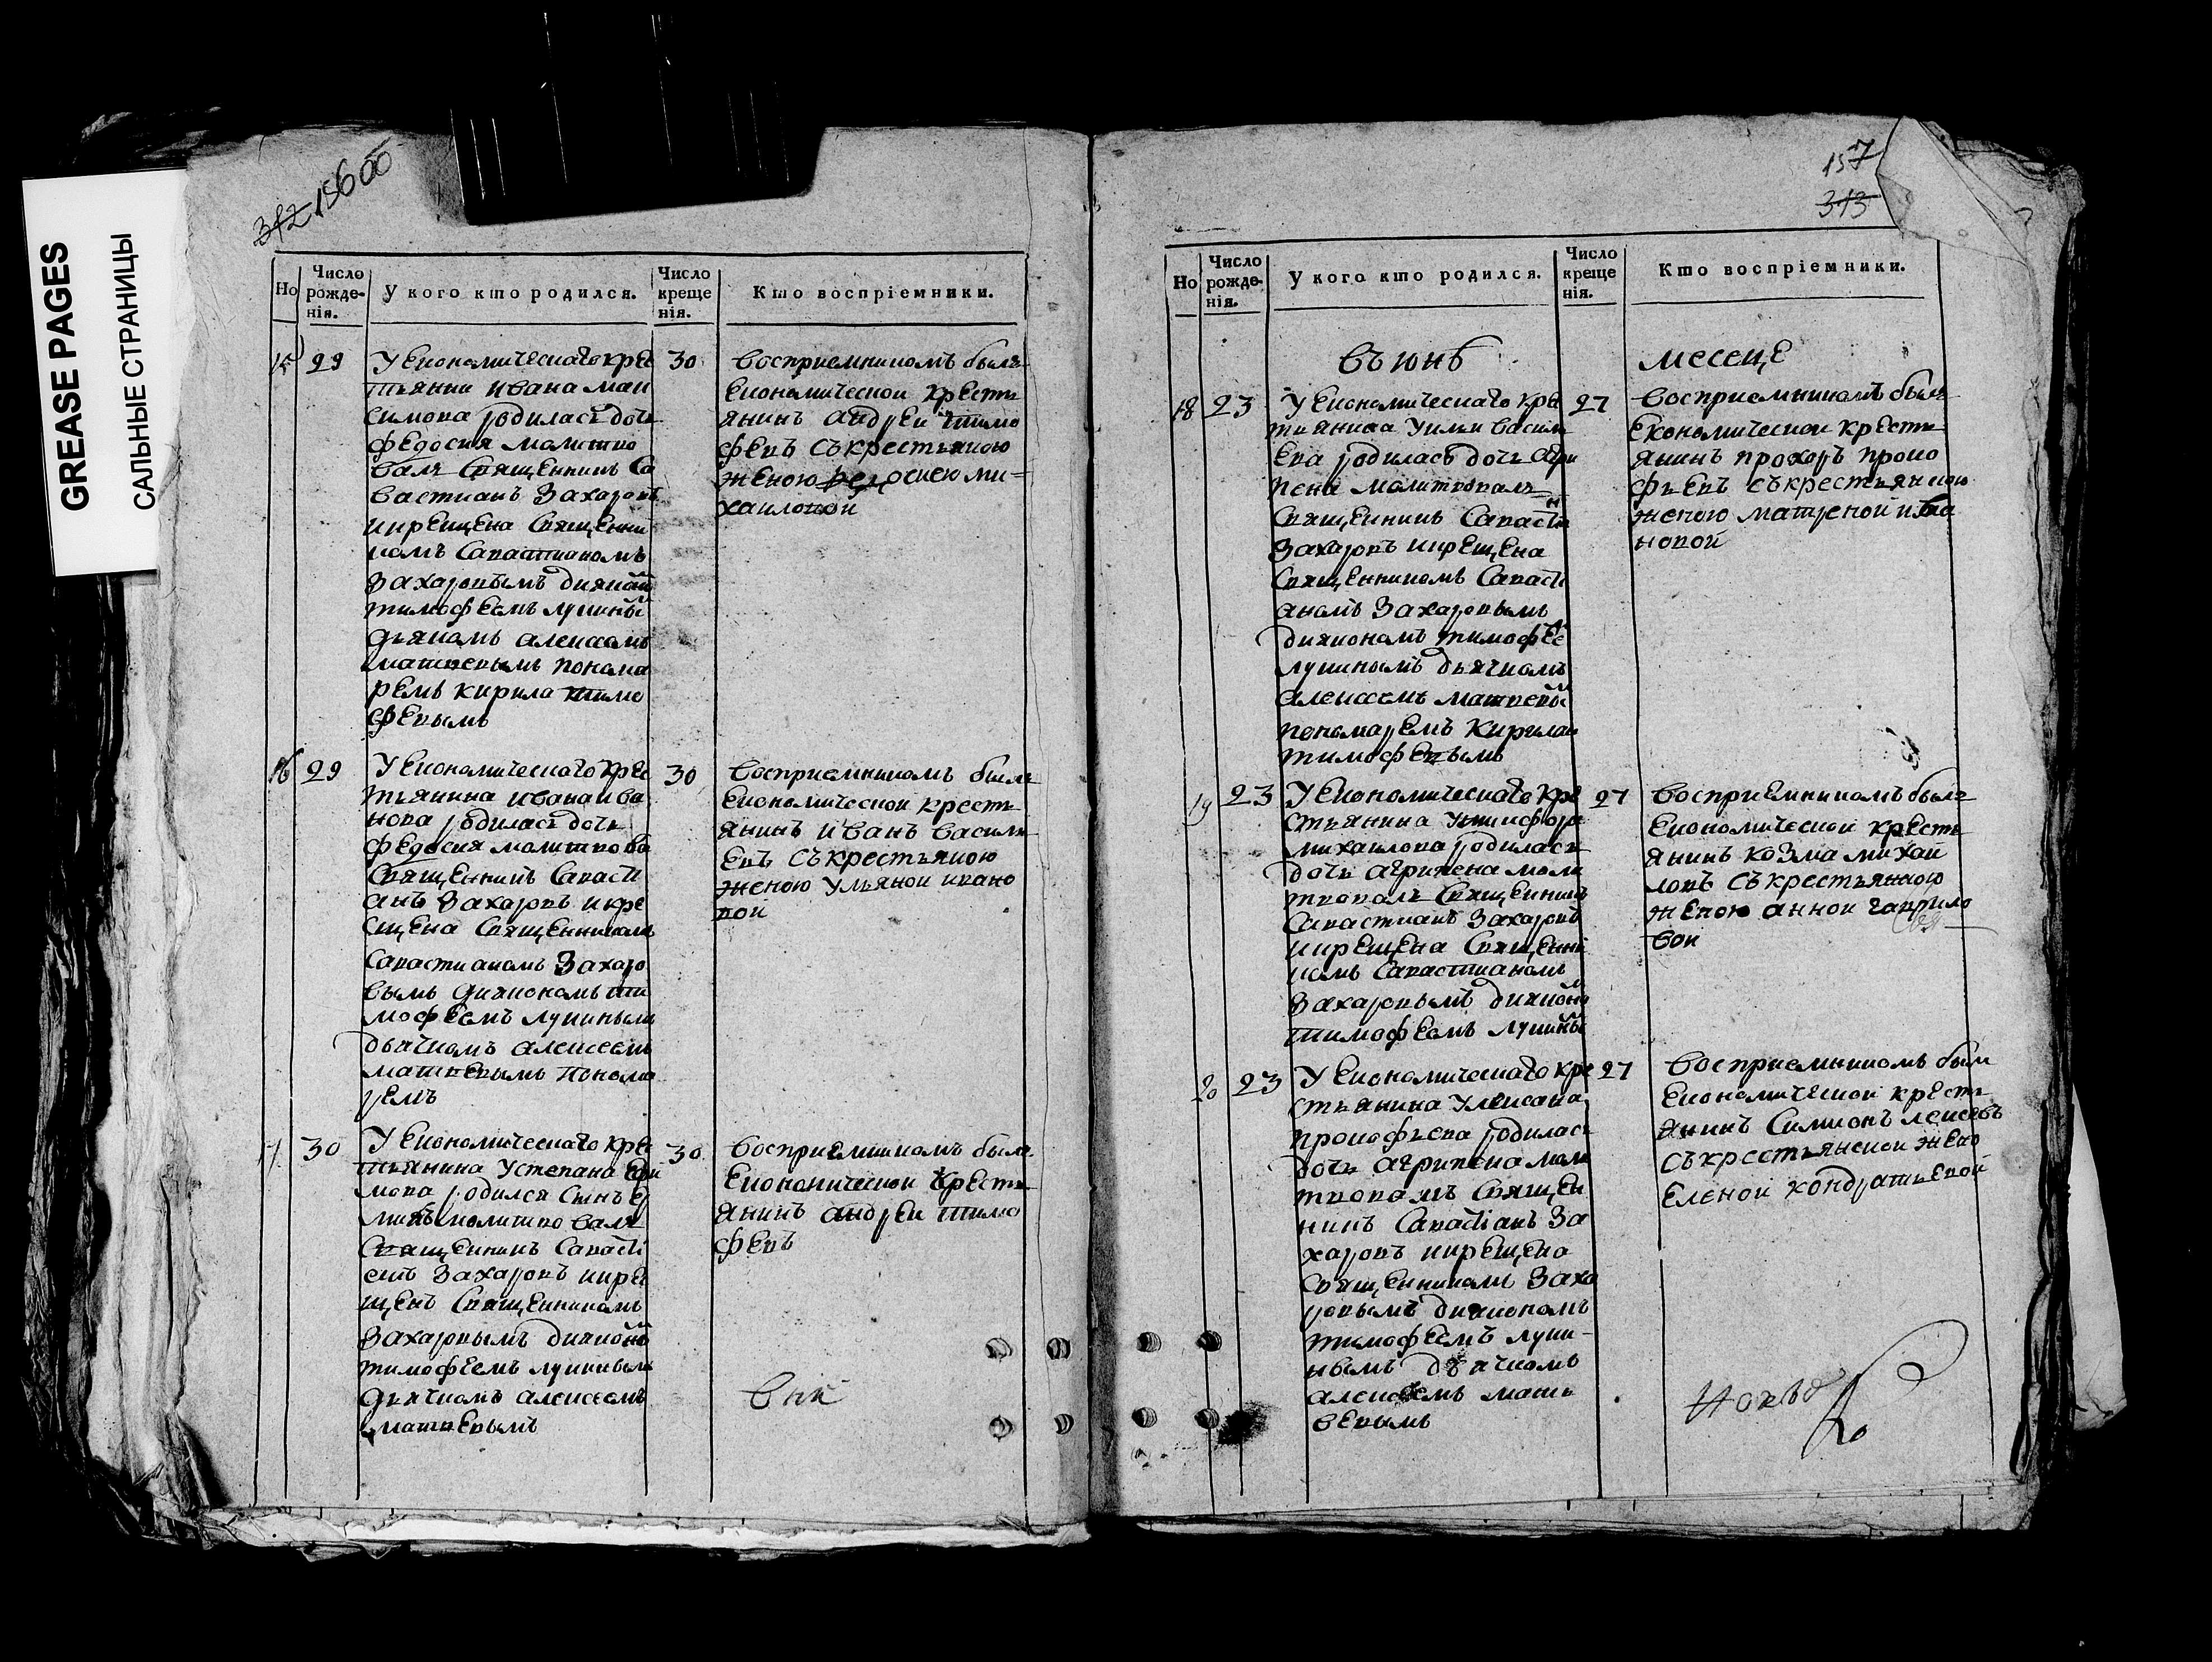 GREASE PAGES
САЛЬНЫЕ СТРАНИЦЫ
312 156 об
Но
Число рожде-нія.
У кого кто родился.
Число креще нія.
Кто воспріемники.
15 29
У економическаго крес
тьянина ивана мак
симова родилась дочь
федосия молитво
валъ священникъ са
вастианъ Захаровъ
икрещена священни
комъ Савастианомъ
Захаровымъ дияко
тимофеемъ лукины
дьякомъ алексеомъ
матвевымъ понома
ремъ кирила тимо
февымъ
30
восприемникомъ былъ
економическои кресть
янинъ андреи тимо
февъ съкрестьяною
женою федосиею ми-
хаиловой
16 29
У економическаго крес
тьянина ивана ива
нова родилась дочь
федосия молитвова
священникъ Савасти
анъ Захаровъ икре
щена священникомъ
Савастианомъ Захаро
вымъ диякономъ ти
мофеемъ лукинымъ
дьячкомъ алексеемъ
матвевымъ понома
ремъ
30
восприемникомъ былъ
економическои кресть
янинъ иванъ василь
евъ съкрестьяною
женою ульяной ивано
вой
17 30
У економическаго крес
тьянина Устепана ефи
мова родился сынъ
молитвовалъ
священникъ Савасти
енъ Захаровъ икре
щенъ священникомъ
Захаровымъ дияконо
тимофеемъ лукинымъ
дьячкомъ алексеемъ
матвевымъ
30
восприемникомъ былъ
економическои кресть
янинъ андреи тимо
февъ
157
313
Но
Число рожде-нія.
У кого кто родился.
Число креще нія.
Кто воспріемники.
въ июнѣ месеце
18 23
У економическаго кре
тьянина Уильи василь
ева родилась дочь агри
пена молитвовалъ
священникъ Саваст
Захаровъ икрещена
священникомъ Савасти
аномъ Захаровымъ
дияконамъ тимофее
лукинымъ дьячкомъ
алексеемъ матвевы
пономаремъ Кирилаи
тимофевымъ
27
восприемникомъ былъ
економическои кресть
янинъ прохоръ проко
фьевъ съкрестьянскою
женою матреной ива
новой
19 23
У економическаго кре
стьянина Уникифора
михаилова родилась
дочь агрипена моли
твовалъ священникъ
Савастианъ Захаровъ
икрещена священни
комъ Савастианомъ
Захаровымъ диякон
тимофеемъ лукины
27
восприемникомъ былъ
економическои кресть
янинъ козма михаи
ловъ съкрестьяною
женою анной гаврило
вои
20 23
У економическаго кре
стьянина Улексана
прокофьева родилась
дочь агрипена моли
твовалъ священ
никъ Савастианъ За
харовъ икрещена
священникомъ Заха
ровымъ дияконамъ
тимофеемъ луки-
нымъ дьячкомъ
алексеемъ матв
вевымъ
27
восприемникомъ был
економическои кресть
янинъ Симионъ лексевъ
съкрестьянскои жено
еленой кондратьевой